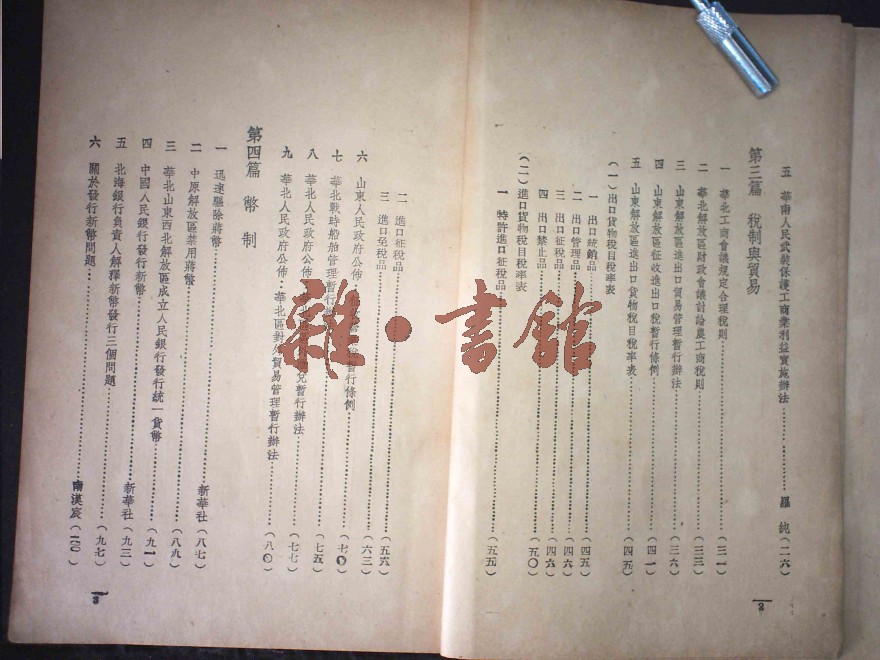 五 華南人民武裝保護工商業利益實施辦法 羅 純（二六）
第三篇 稅制與貿易
一 華北工商會議規定合理稅則（三一）
二 華北解放區財政會議討論農工商稅則（三三）
三 山東解放區進出口貿易管理暫行辦法（三六）
四 山東解放區征收進出口稅暫行條例（四一）
五 山東解放區進出口貨物稅目稅率表（四五）
（一）出口貨物稅目稅率表
一 出口統銷品（四五）
二 出口管理品（四六）
三 出口征稅品（四六）
四 出口禁止品（五〇）
（二）進口貨物稅目稅率表
一 特許進口征稅品（五五）
2
二 進口征稅品（五六）
三 進口免稅品（六三）
六 山東人民政府公佈 暫行條例（七〇）
七 華北戰時船舶管理暫行（七五）
八 華北人民政府公佈 華北區 兌暫行辦法（七七）
九 華北人民政府公佈 華北區對外貿易管理暫行辦法（八〇）
第四篇 幣制
一 迅速驅除蔣幣 新華社（八七）
二 中原解放區禁用蔣幣（八九）
三 華北山東西北解放區成立人民銀行發行統一貨幣（八九）
四 中國人民銀行發行新幣（九一）
五 北海銀行負責人解釋新幣發行三個問題 新華社（九三）
六 關於發行新幣問題（九七）
南漢宸（一〇〇）
3
雜·書館